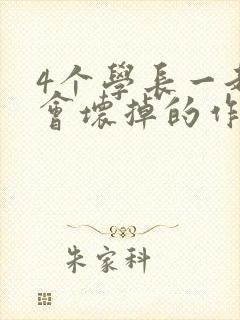 4个学長一起
會壞掉的作
朱家科